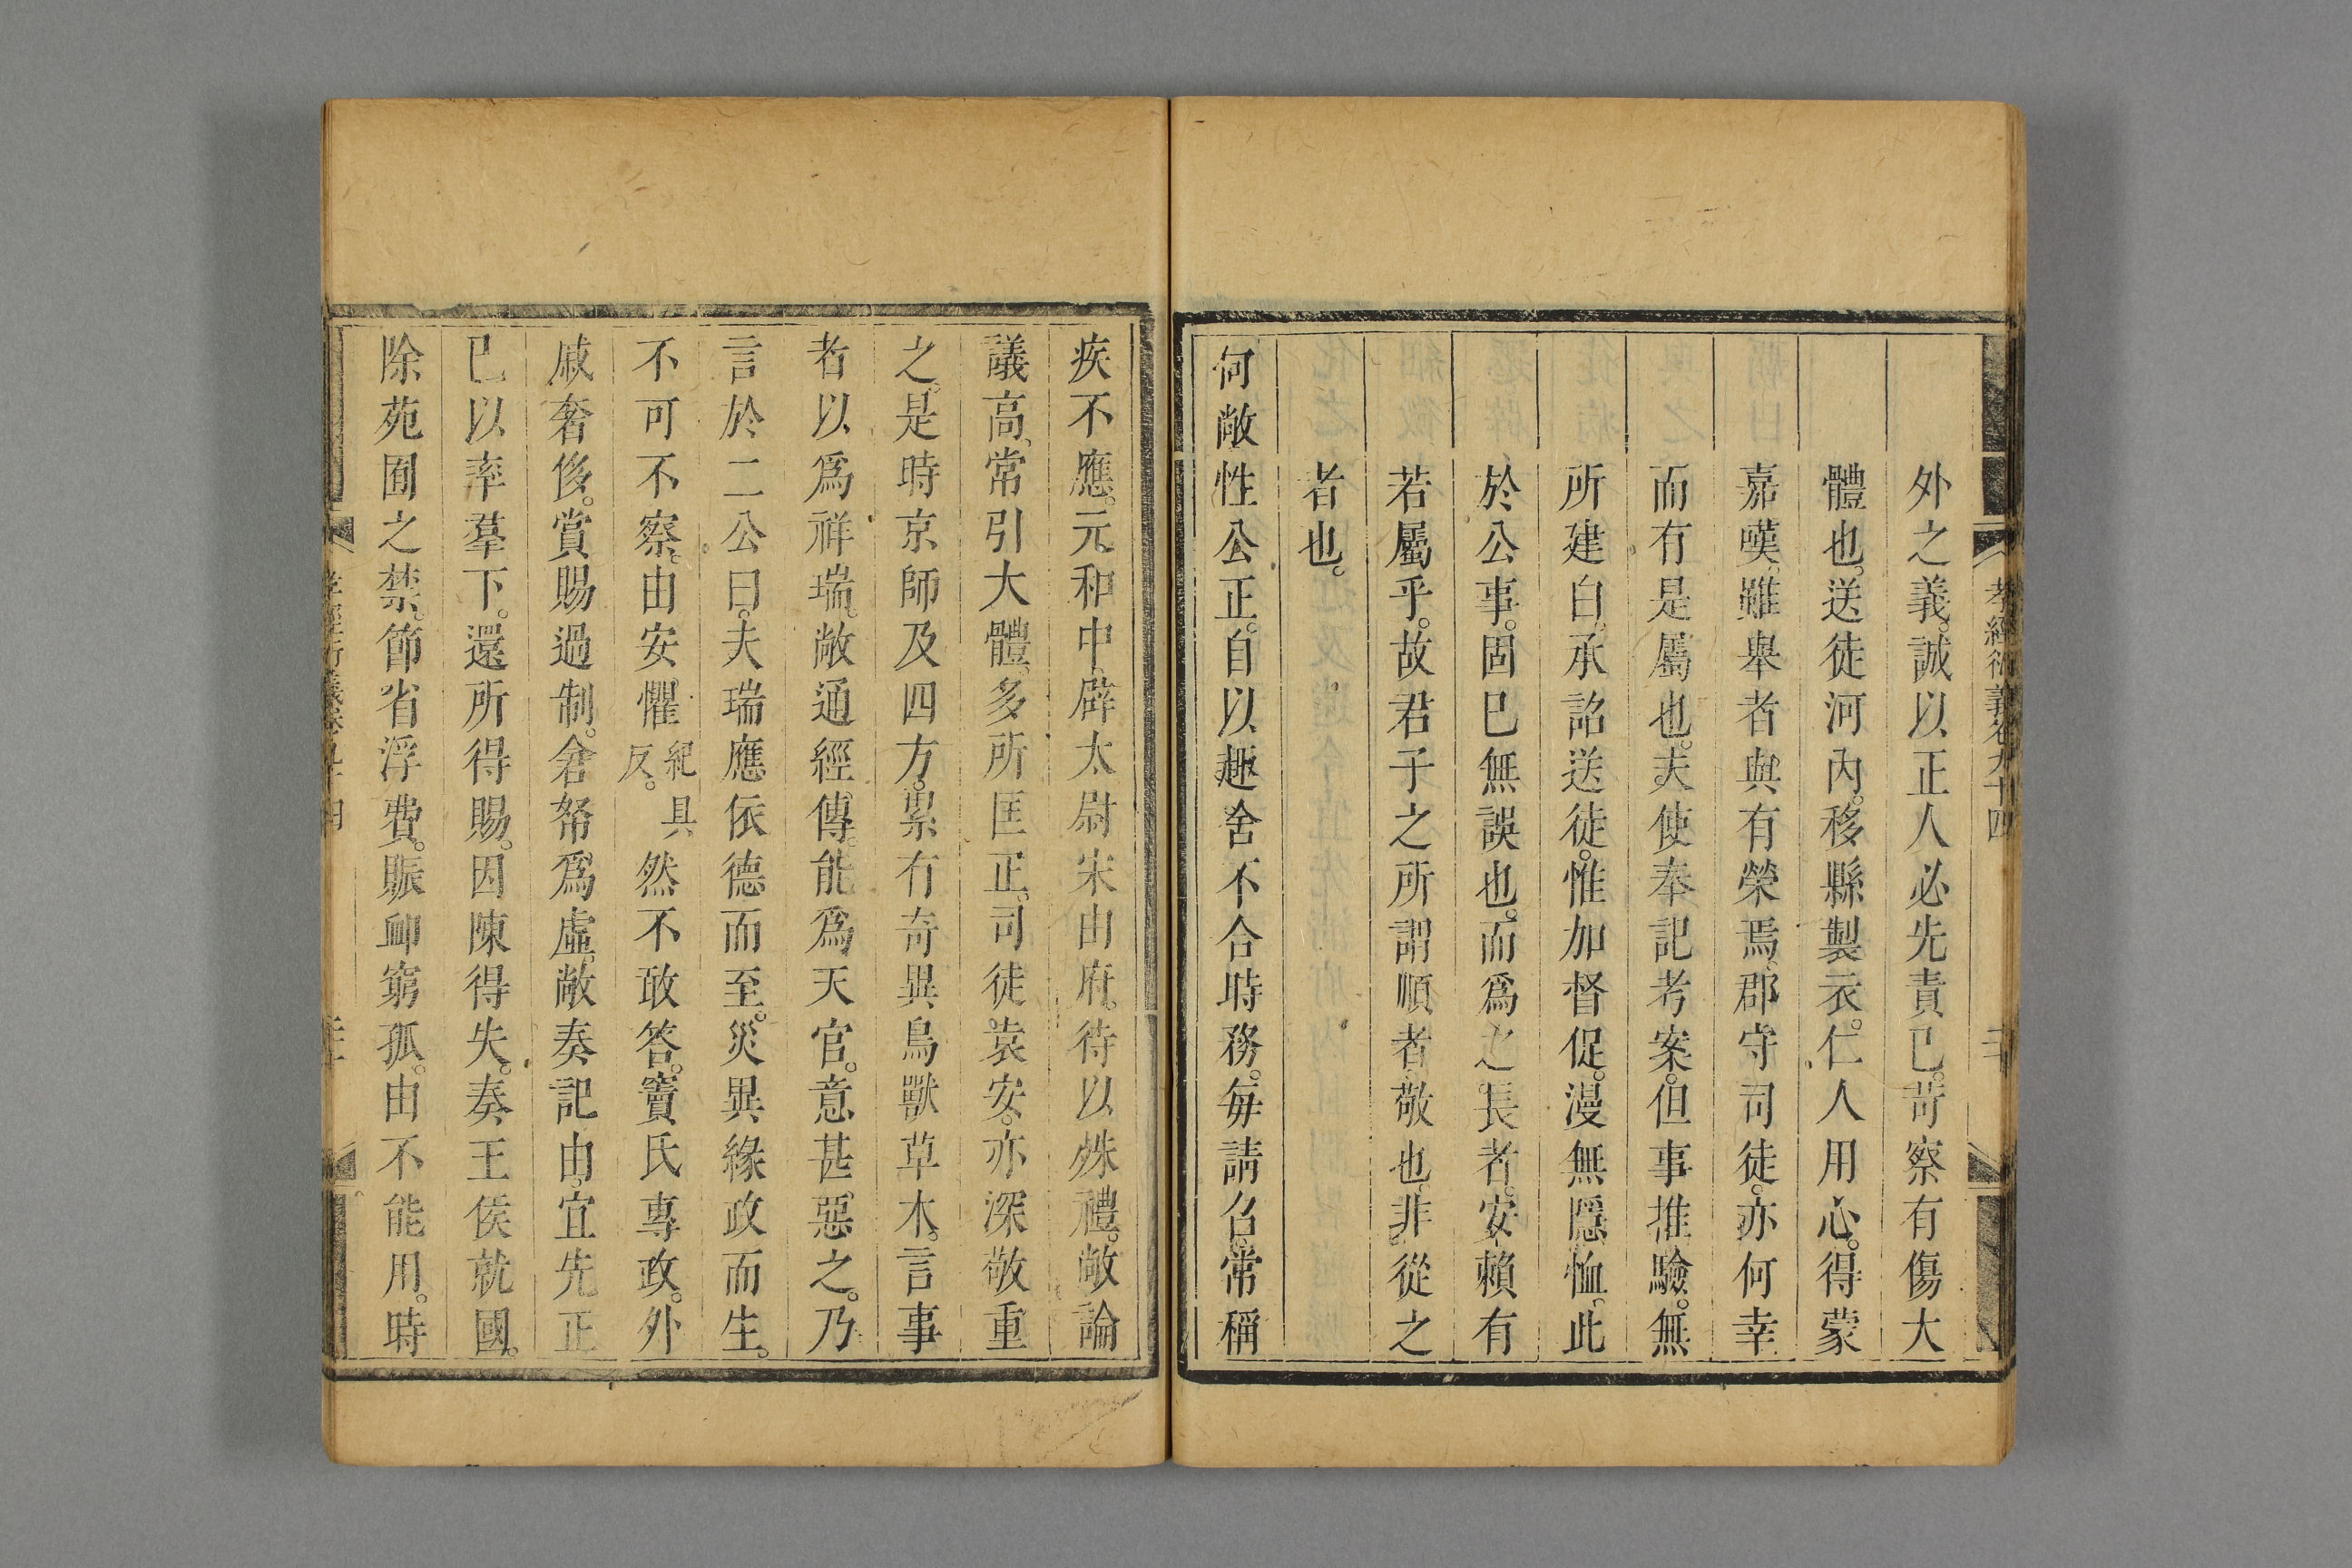 孝經衍義卷九十四
外之義。誠以正人必先責己。苛察有傷大
體也。送徒河內。移縣製衣。仁人用心。得蒙
嘉嘆。雖舉者與有榮焉。郡守司徒。亦何幸
而有是屬也。夫使奉記考案。但事推驗。無
所建白。承詔送徒。惟加督促。漫無隱恤。此
於公事。固已無誤也。而爲之長者。安賴有
若屬乎。故君子之所謂順者。敬也。非從之
者也。
何敞性公正。自以趣舍不合時務。每請召。常稱
疾不應。元和中。辟太尉宋由府。待以殊禮。敞論
議高。常引大體。多所匡正。司徒袁安。亦深敬重
之。是時京師及四方。累有奇異鳥獸草木。言事
者以爲祥瑞。敞通經傳。能爲天官。意甚惡之。乃
言於二公曰。夫瑞應依德而至。災異緣政而生。
不可不察。由安懼紀具反。然不敢答。竇氏專政。外
戚奢侈。賞賜過制。倉帑爲虛。敞奏記由。宜先正
已以率羣下。還所得賜。因陳得失。奏王侯就國。
除苑囿之禁。節省浮費。賑卹窮孤。由不能用。時
孝經衍義卷九十四